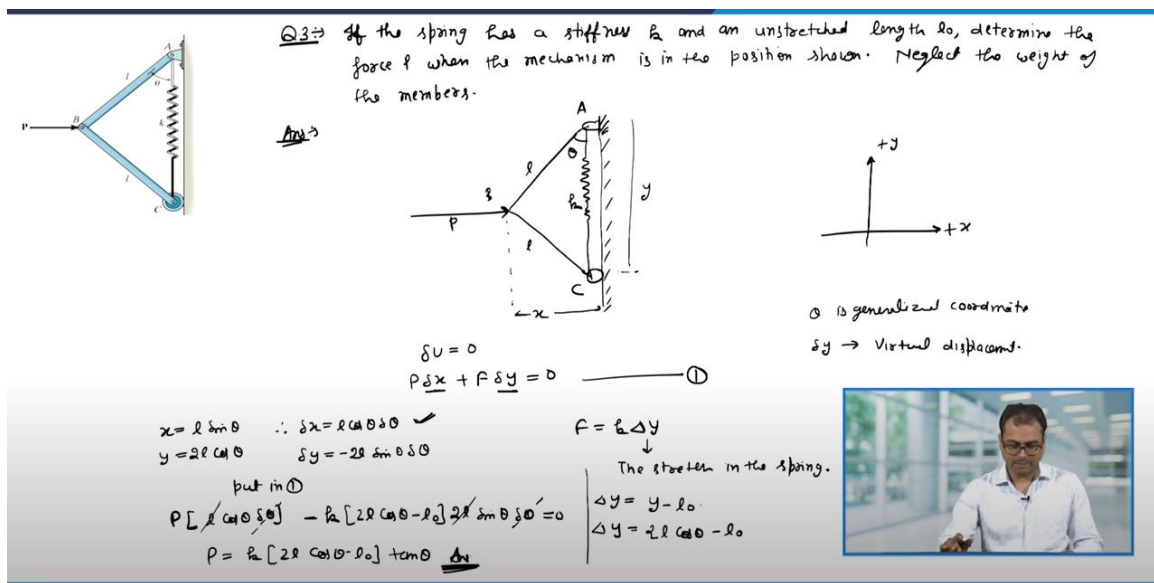 Q3:→ If the spring has a stiffness k and an unstretched length l₀, determine the
force P when the mechanism is in the position shown. Neglect the weight of
the members.
Ans→
A
l
θ
k
B
P
l
C
A
θ
l
k
y
B
P
l
C
x
+y
+x
θ is generalized coordinate
δy → Virtual displacement.
δU = 0
Pδx + Fδy = 0 ——— ①
x = l sinθ ∴ δx = l cosθ δθ ✓
y = 2l cosθ δy = -2l sinθ δθ
put in ①
P[l cosθ δθ] - k[2l cosθ - l₀] 2l sinθ δθ = 0
P = k[2l cosθ - l₀] tanθ Ans
F = kΔy
↓
The stretch in the spring.
Δy = y - l₀.
Δy = 2l cosθ - l₀